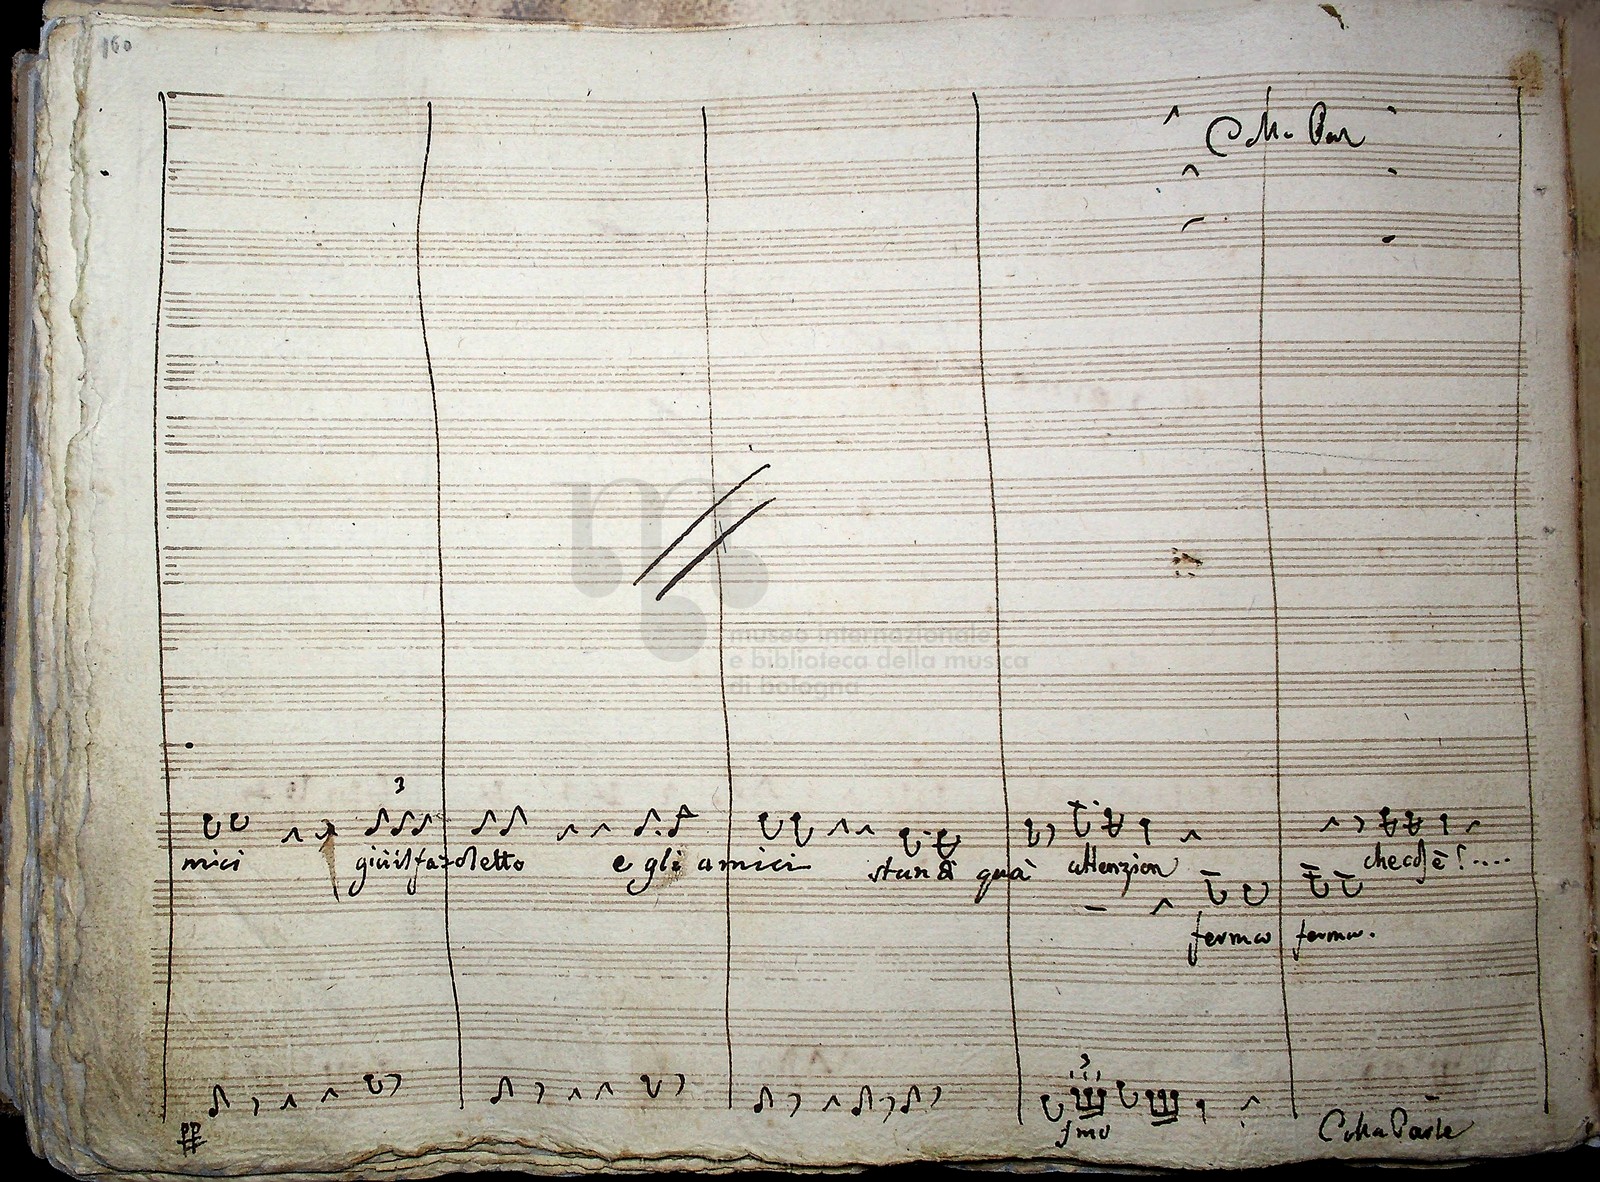 160
Colla Par
museo internazionale
e biblioteca della musica
di bologna
3
mici giù il fazoletto e gli amici stan di quà attenzion checos'è?....
fermo fermo.
3
PP fmo Colla Parte